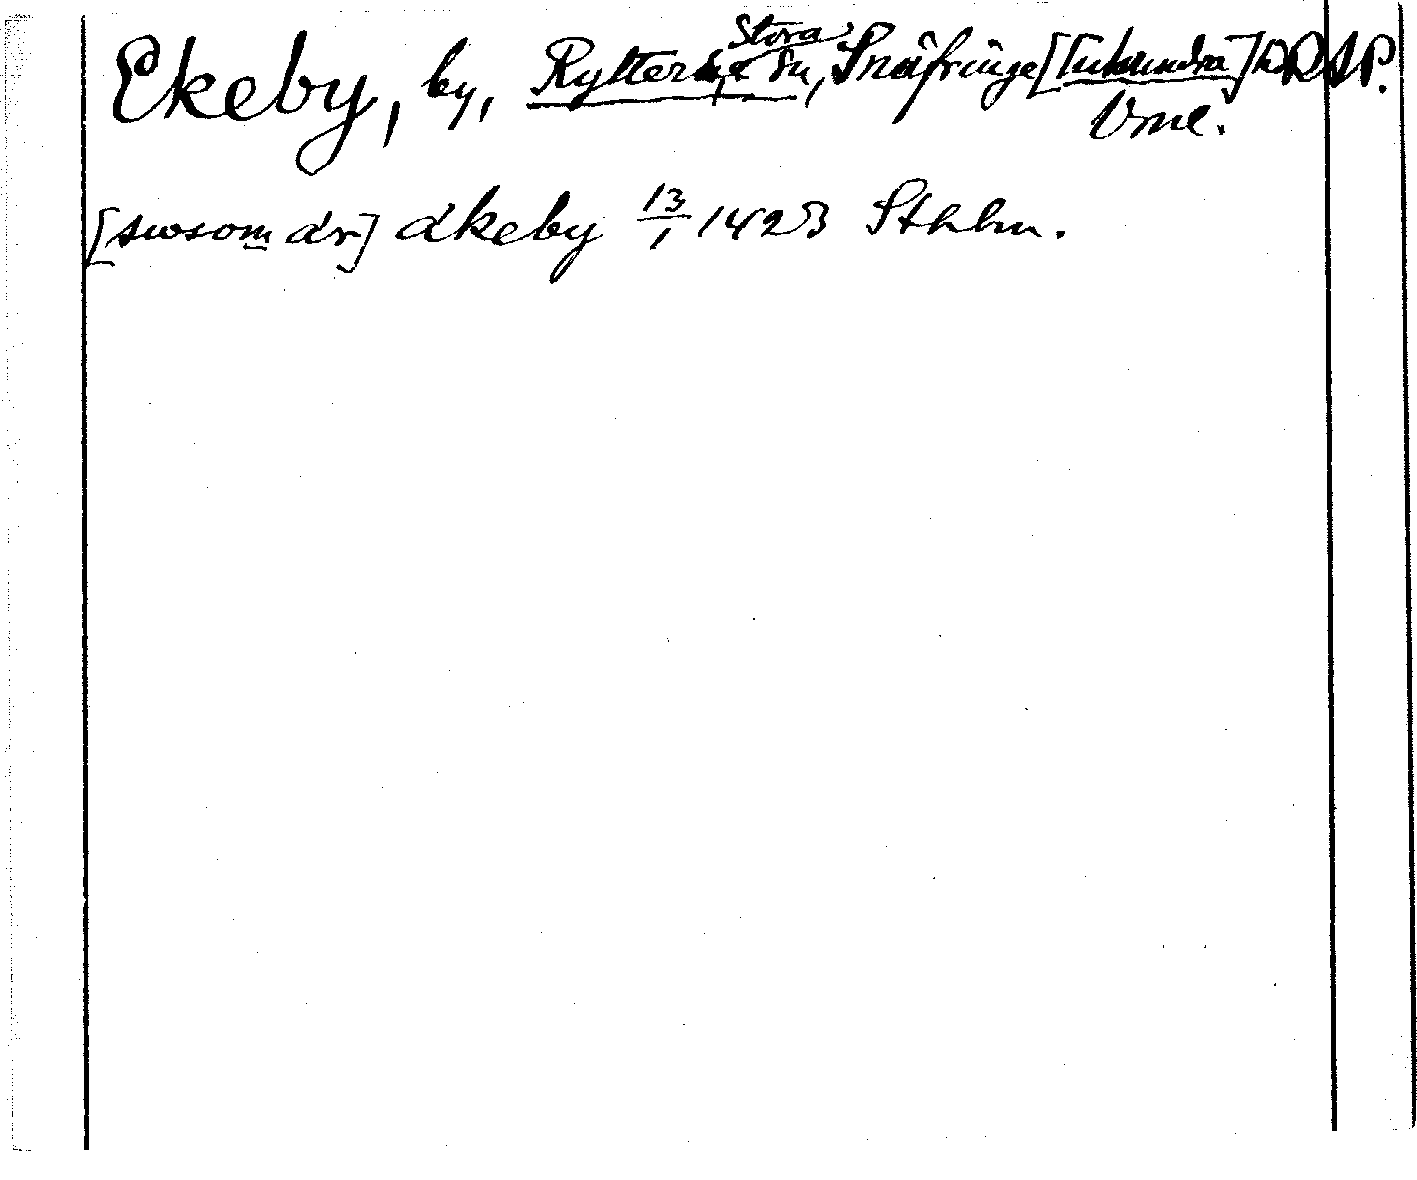 Ekeby, by, Rytterns, Stora sn, Snäfringe [Tuhundra] hd RAP.
Vml.
[swsom dr] ækeby 13/1 1423 Sthhm.